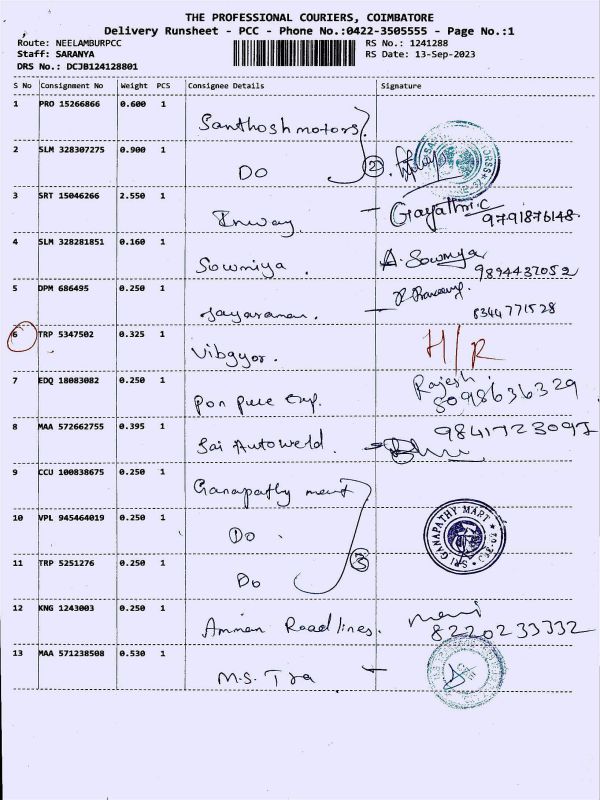 THE PROFESSIONAL COURIERS, COIMBATORE
Delivery Runsheet - PCC - Phone No.:0422-3505555 - Page No.:1
Route: NEELAMBURPCC RS No.: 1241288
Staff: SARANYA RS Date: 13-Sep-2023
DRS No.: DCJB124128801
S No Consignment No Weight PCS Consignee Details Signature
1 PRO 15266866 0.600 1 Santhosh motors
2 SLM 328307275 0.900 1 DO 2
3 SRT 15046266 2.550 1 Inway. Gayathri.C
9791876148
4 SLM 328281851 0.160 1 Sowmiya. A. Sowmiya
9894437052
5 DPM 686495 0.250 1 Jayaraman.
8344771528
6 TRP 5347502 0.325 1 Vibgyor. H/R
7 EDQ 18083082 0.250 1 Pon Pure Rajesh
8 MAA 572662755 0.395 1 Sai Autoweld.
9 CCU 100838675 0.250 1 Ganapathy mart
10 VPL 945464019 0.250 1 Do
SRI GANAPATHY MART
11 TRP 5251276 0.250 1 Do 3
12 KNG 1243003 0.250 1 Amman Roadlines. mani
8220233332
13 MAA 571238508 0.530 1 M.S.